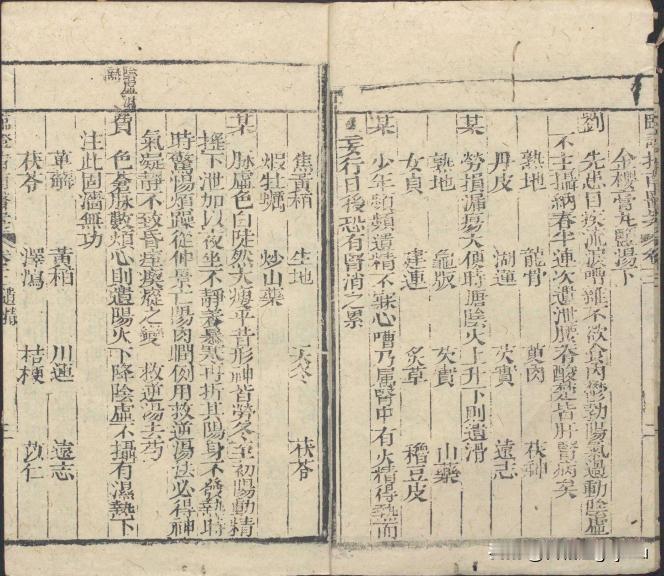 臨證指南醫案 卷三
金櫻膏丸鹽湯下
劉 先患目疾流淚嘈雜不欲食內鬱勃陽氣過動陰虛
不主攝納春半連次遺泄腰脊酸楚皆肝腎病矣
熟地 龍骨 萸肉 茯神
丹皮 湖蓮 芡實 遠志
某 勞損漏瘍大便時溏陰火上升下則遺滑
熟地 龜版 芡實 山藥
女貞 建蓮 炙草 穭豆皮
某 少年頻頻遺精不寐心嘈乃屬腎中有火精得熱而
妄行日後恐有腎消之累
焦黃柏 生地 天冬 茯苓
煅牡蠣 炒山藥
某 脉虛色白陡然大瘦平昔形神皆勞冬至初陽動精
搖下泄加以夜坐不靜養暴寒再折其陽身不發熱時
時驚惕煩躁從仲景亡陽肉瞤例用救逆湯法必得神
氣凝靜不致昏痙瘛瘲之變 救逆湯去芍
陰虛濕熱
費 色蒼脉數煩心則遺陽火下降陰虛不攝有濕熱下
注此固濇無功
萆薢 黃柏 川連 遠志
茯苓 澤瀉 桔梗 苡仁
臨證指南醫案 卷三 遺精